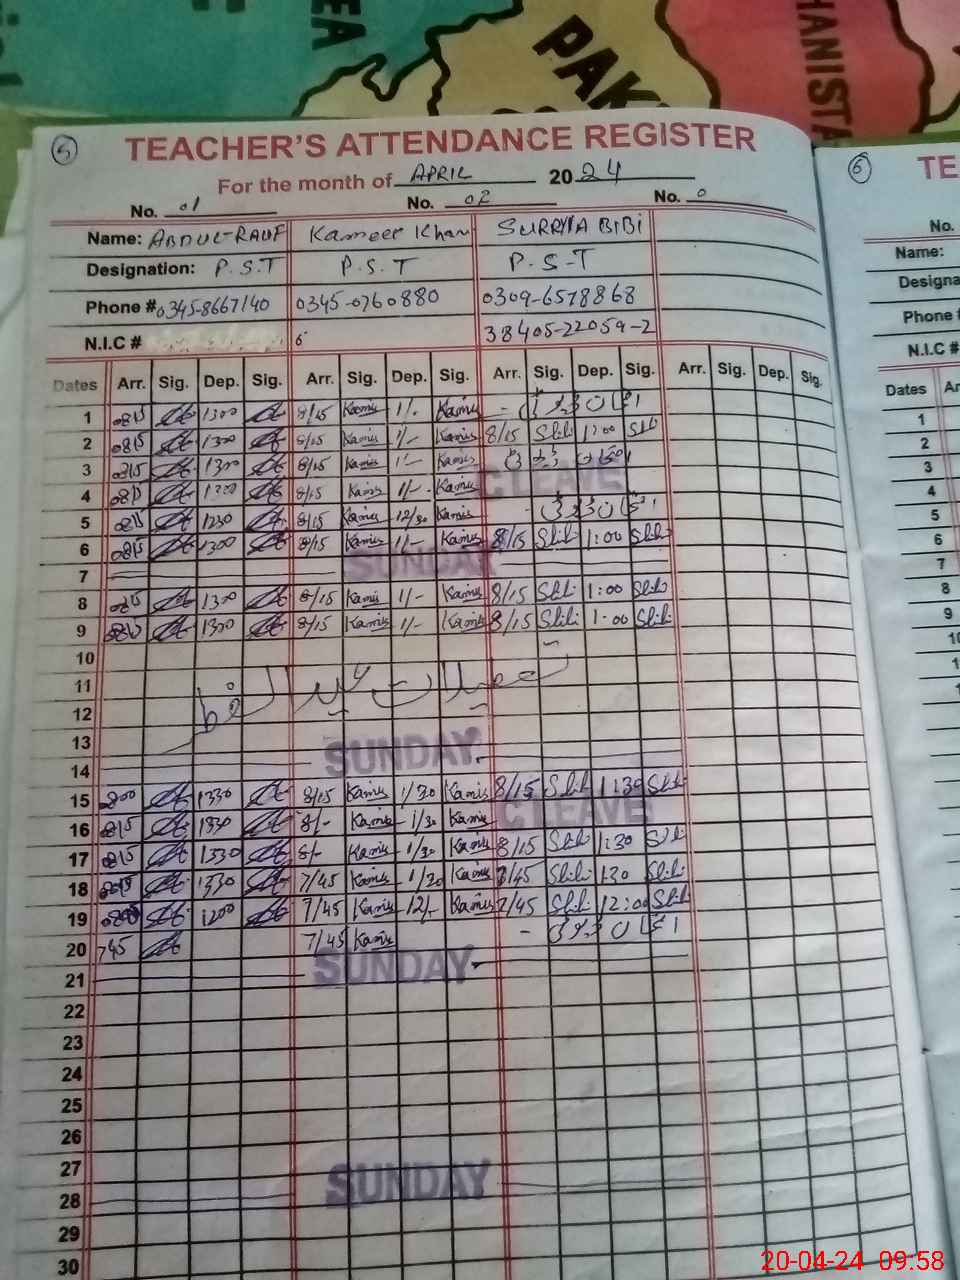 EA
PAK
HANISTA
5
TEACHER'S ATTENDANCE REGISTER
For the month of APRIL 2024
No. 01 No. 02 No. 0
Name: ABDUL-RAUF Kameer Khan SURRYIA BIBI
Designation: P.S.T P.S.T P.S.T
Phone # 0345-8667140 0345-0760880 0309-6578868
N.I.C # 38405-22059-2
Dates Arr. Sig. Dep. Sig. Arr. Sig. Dep. Sig. Arr. Sig. Dep. Sig. Arr. Sig. Dep. Sig.
1 0815 1300 8/15 Kamis 1/- Kamis
2 0815 1300 8/15 Kamis 1/- Kamis 8/15 Sbibi 1:00
3 0815 1300 8/15 Kamis 1/- Kamis
4 0815 1300 8/15 Kamis 1/- Kamis C LEAVE
5 0815 1230 8/15 Kamis 12/30 Kamis
6 0815 1300 8/15 Kamis 1/- Kamis 8/15 Sbibi 1:00 Sbibi
7 SUNDAY
8 0815 1300 8/15 Kamis 1/- Kamis 8/15 Sbibi 1:00 Sbibi
9 0815 1300 8/15 Kamis 1/- Kamis 8/15 Sbibi 1:00 Sbibi
10
11 تعطیلات عید الفطر
12
13
14 SUNDAY
15 0800 1330 8/15 Kamis 1/30 Kamis 8/15 Sbibi 1:30 Sbibi
16 0815 1330 8/- Kamis 1/30 Kamis C LEAVE
17 0815 1330 8/- Kamis 1/30 Kamis 8/15 Sbibi 1:30 Sbibi
18 1330 7/45 Kamis 1/30 Kamis 7/45 Sbibi 130 Sbibi
19 1200 7/45 Kamis 12/- Kamis 7/45 Sbibi 12:00 Sbibi
20 745 7/45 Kamis
21 SUNDAY
22
23
24
25
26
27
28 SUNDAY
29
30
6
TE
No.
Name:
Designa
Phone #
N.I.C #
Dates Ar
1
2
3
4
5
6
7
8
9
20-04-24 09:58